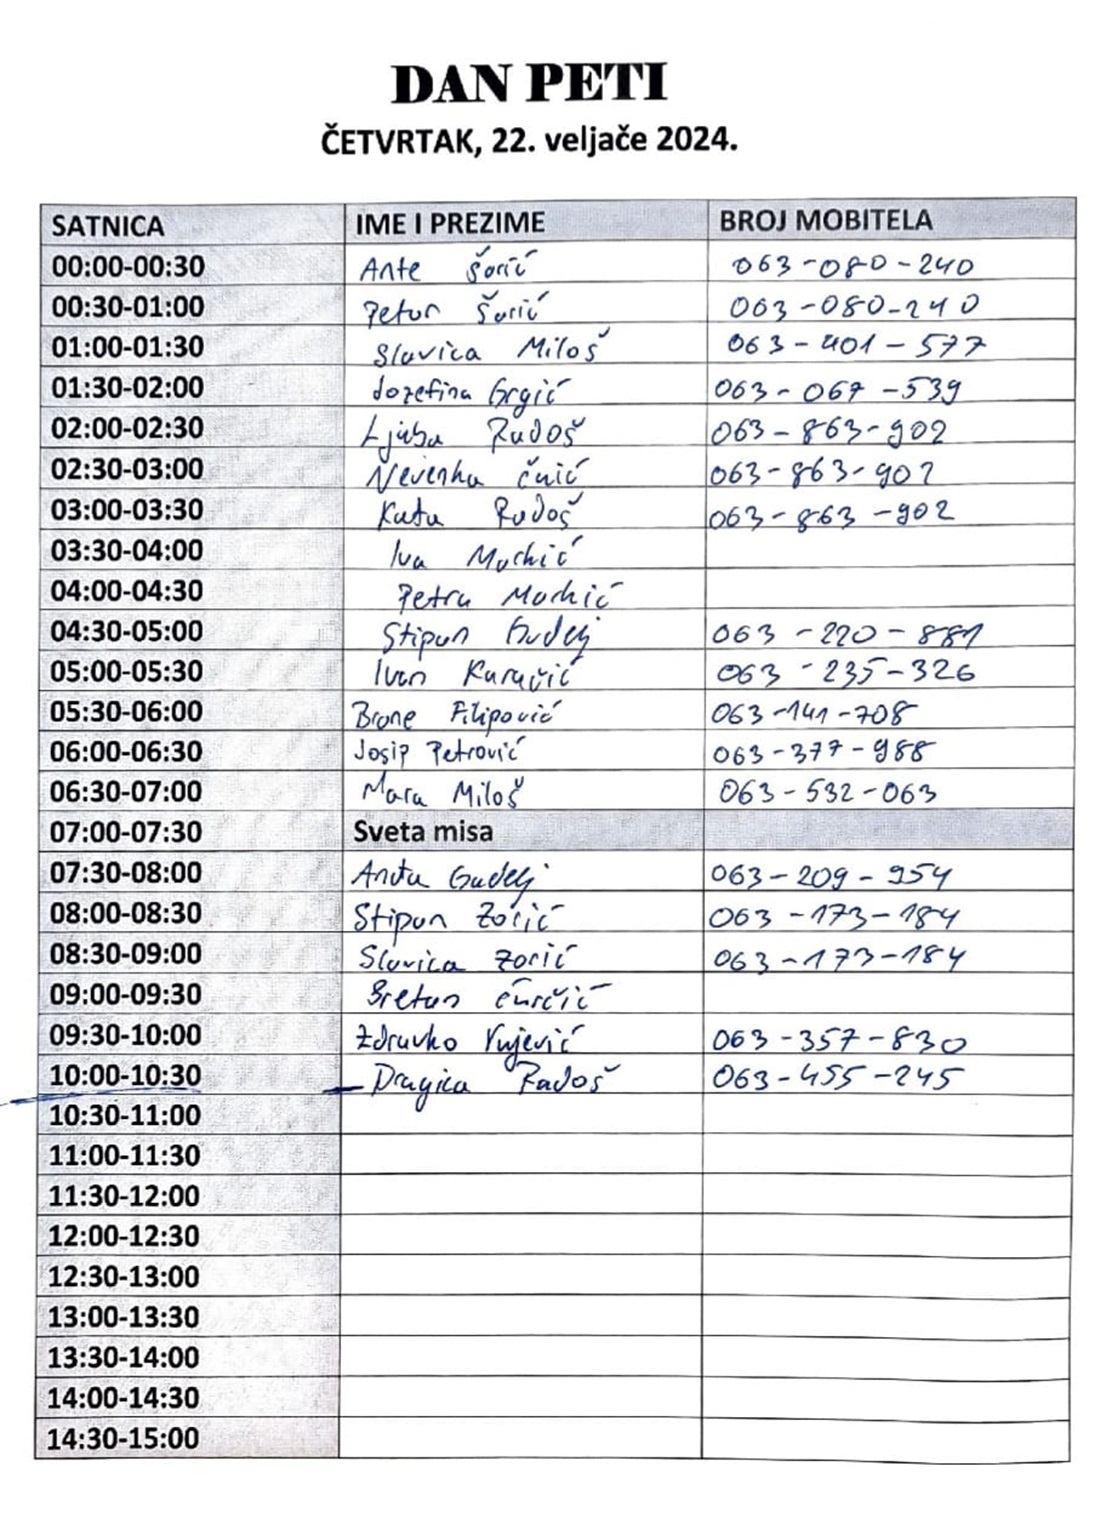 DAN PETI
ČETVRTAK, 22. veljače 2024.
SATNICA IME I PREZIME BROJ MOBITELA
00:00-00:30 Ante Šorić 063-080-240
00:30-01:00 Petar Šorić 063-080-240
01:00-01:30 Slavica Miloš 063-401-577
01:30-02:00 Jozefina Grgić 063-067-539
02:00-02:30 Ljuba Radoš 063-863-902
02:30-03:00 Nevenka 063-863-902
03:00-03:30 Kata Radoš 063-863-902
03:30-04:00 Iva
04:00-04:30 Petra
04:30-05:00 Stipan Gudelj 063-220-881
05:00-05:30 Ivan Karačić 063-235-326
05:30-06:00 Brane Filipović 063-141-708
06:00-06:30 Josip Petrović 063-377-988
06:30-07:00 Mara Miloš 063-532-063
07:00-07:30 Sveta misa
07:30-08:00 Anita Gudelj 063-209-954
08:00-08:30 Stipan Zorić 063-173-184
08:30-09:00 Slavica Zorić 063-173-184
09:00-09:30 Sretan Ćurčić
09:30-10:00 Zdravko Vujević 063-357-830
10:00-10:30 Dragica Radoš 063-455-245
10:30-11:00
11:00-11:30
11:30-12:00
12:00-12:30
12:30-13:00
13:00-13:30
13:30-14:00
14:00-14:30
14:30-15:00